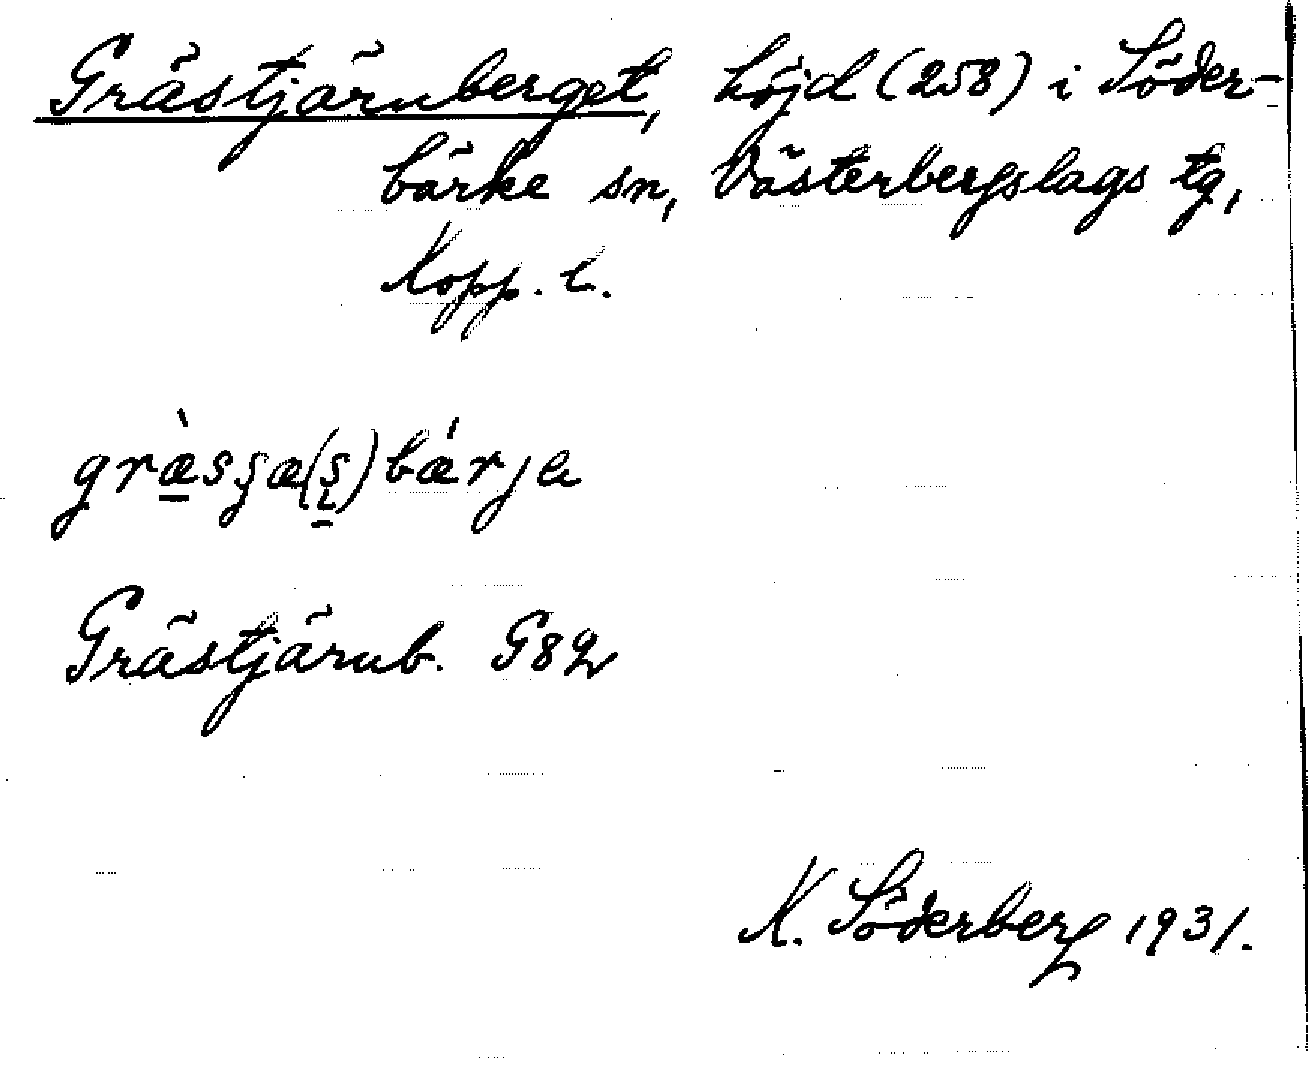 Grästjärnberget, höjd (258) i Söder-
bärke sn, Västerbergslags tg,
Kopp. l.
Grästjärnb. G82
K. Söderberg 1931.